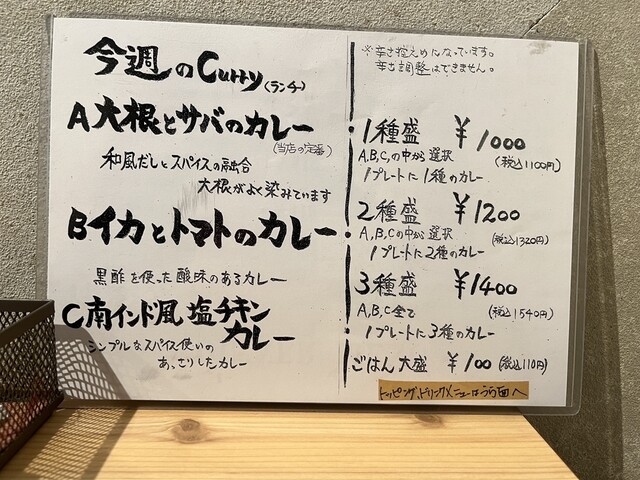 今週のCurry(ランチ)
A大根とサバのカレー
(当店の定番)
和風だしとスパイスの融合
大根がよく染みています
Bイカとトマトのカレー
黒酢を使った酸味のあるカレー
C南インド風塩チキン
カレー
シンプルなスパイス使いの
あっさりしたカレー
※辛さ控えめになっています。
辛さ調整はできません。
・1種盛 ¥1000
A,B,Cの中から選択 (税込1100円)
1プレートに1種のカレー
・2種盛 ¥1200
A,B,Cの中から選択 (税込1320円)
1プレートに2種のカレー
・3種盛 ¥1400
A,B,C全て (税込1540円)
1プレートに3種のカレー
・ごはん大盛 ¥100 (税込110円)
トッピング、ドリンクメニューはうら面へ